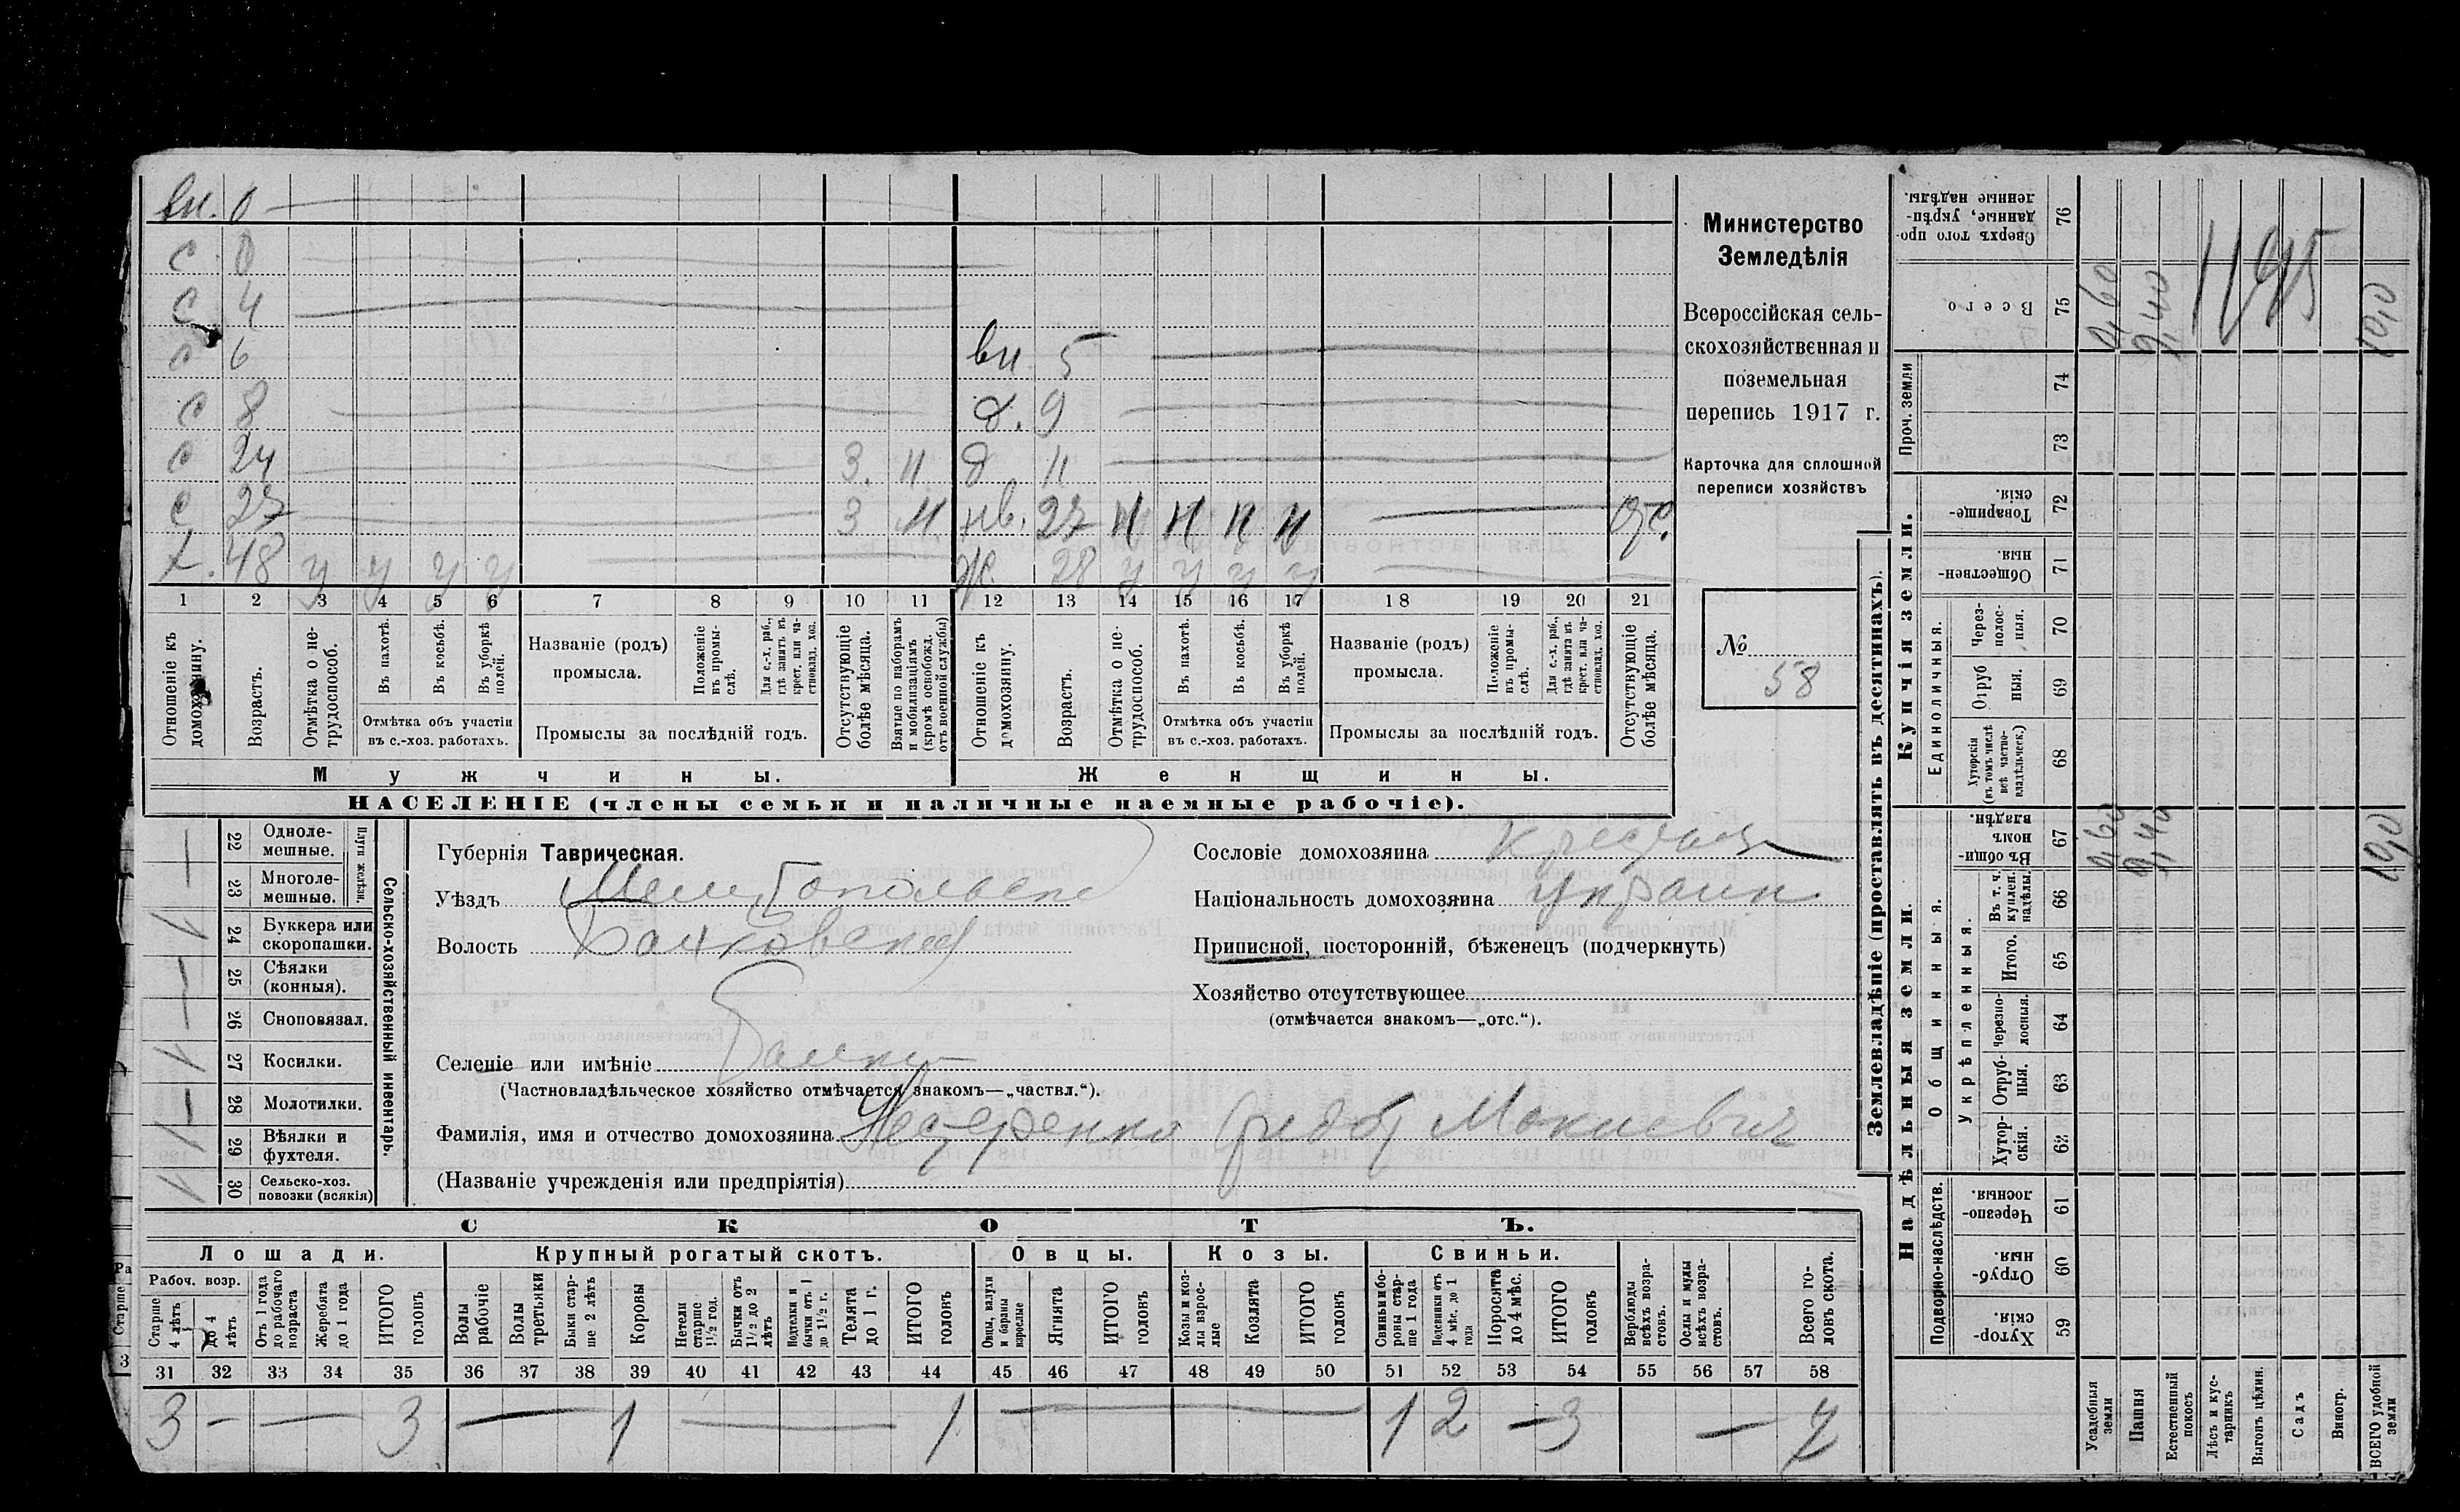 вн. 0
с 0
с 4
с 6 вн 5
с 8 д. 9
с 24 3. н д 11
с 27 3 н нв. 27 н н н н отс.
х. 48 у у у у ж. 28 у у у у
1 2 3 4 5 6 7 8 9 10 11 12 13 14 15 16 17 18 19 20 21
Отношеніе къ домохозяину.
Возрастъ.
Отмѣтка о не-трудоспособ.
Въ пахотѣ.
Въ косьбѣ.
Въ уборкѣ полей.
Отмѣтка объ участіи въ с.-хоз. работахъ.
Названіе (родъ) промысла.
Положеніе въ промы-слѣ.
Для с.-х. раб., гдѣ занятъ въ крест. или ча-стновлад. хоз.
Промыслы за послѣдній годъ.
Отсутствующіе болѣе мѣсяца.
Взятые по наборамъ и мобилизаціямъ (кромѣ освобожд. отъ военной службы)
Отношеніе къ домохозяину.
Возрастъ.
Отмѣтка о не-трудоспособ.
Въ пахотѣ.
Въ косьбѣ.
Въ уборкѣ полей.
Отмѣтка объ участіи въ с.-хоз. работахъ.
Названіе (родъ) промысла.
Положеніе въ промы-слѣ.
Для с.-х. раб., гдѣ занята въ крест. или ча-стновлад. хоз.
Промыслы за послѣдній годъ.
Отсутствующіе болѣе мѣсяца.
Мужчины. Женщины.
НАСЕЛЕНІЕ (члены семьи и наличные наемные рабочіе).
Министерство
Земледѣлія
Всероссійская сель-
скохозяйственная и
поземельная
перепись 1917 г.
Карточка для сплошной
переписи хозяйствъ
№ 58
22 Одноле-мешные.
23 Многоле-мешные.
Плуги желѣзн.
24 Буккера или скоропашки.
25 Сѣялки (конныя).
26 Сноповязал.
27 Косилки.
28 Молотилки.
29 Вѣялки и фухтеля.
30 Сельско-хоз. повозки (всякія)
Сельско-хозяйственный инвентарь.
Губернія Таврическая.
Уѣздъ Мелитопольск
Волость Балковская
Селеніе или имѣніе Балки
(Частновладѣльческое хозяйство отмѣчается знакомъ—„частвл.“).
Фамилія, имя и отчество домохозяина Нестеренко Федот Мокиевич
(Названіе учрежденія или предпріятія)
Сословіе домохозяина крестьян
Національность домохозяина украин
Приписной, посторонній, бѣженецъ (подчеркнуть)
Хозяйство отсутствующее
(отмѣчается знакомъ—„отс.“).
СКОТЪ.
Лошади. Крупный рогатый скотъ. Овцы. Козы. Свиньи.
Рабоч. возр.
Старше 4 лѣтъ
до 4 лѣтъ
Отъ 1 года до рабочаго возраста
Жеребята до 1 года
ИТОГО головъ
Волы рабочіе
Волы третьяки
Быки стар-ше 2 лѣтъ
Коровы
Нетели старше 1½ год.
Бычки отъ 1½ до 2 лѣтъ
Подтелки и бычки отъ 1 до 1½ г.
Телята до 1 г.
ИТОГО головъ
Овцы, валухи и бараны взрослые
Ягнята
ИТОГО головъ
Козы и коз-лы взрос-лые
Козлята
ИТОГО головъ
Свиньи и бо-ровы стар-ше 1 года
Подсвинки отъ 4 мѣс. до 1 года
Поросята до 4 мѣс.
ИТОГО головъ
Верблюды всѣхъ возра-стовъ.
Ослы и мулы всѣхъ возра-стовъ.
Всего го-ловъ скота.
31 32 33 34 35 36 37 38 39 40 41 42 43 44 45 46 47 48 49 50 51 52 53 54 55 56 57 58
3 - — 3 — 1 — 1 — 1 2 - 3 — 7
Землевладѣніе (проставлять въ десятинахъ).
Надѣльныя земли. Купчія земли. Проч. земли
Подворно-наслѣдств.
Общинныя.
Укрѣпленныя.
Единоличныя.
Сверхъ того про-данные, укрѣп-ленные надѣлы. 76
Всего 75 0,60 9,40 10,0
74
73
Товарище-скія. 72
Обществен-ныя. 71
Через-полос-ныя. 70
Отруб-ныя. 69
Хуторскія (въ томъ числѣ всѣ частно-владѣльческ.) 68
Въ общи-номъ владѣн. 67 0,60 9,40 10,0
Въ т. ч. куплен. надѣлы. 66
Итого. 65
Черезпо-лосныя. 64
Отруб-ныя. 63
Хутор-скія. 62
Черезпо-лосныя. 61
Отруб-ныя. 60
Хутор-скія. 59
Усадебныя земли
Пашня
Естественный покосъ
Лѣсъ и кус-тарникъ
Выгонъ цѣлин.
Садъ
Виногр.
ВСЕГО удобной земли